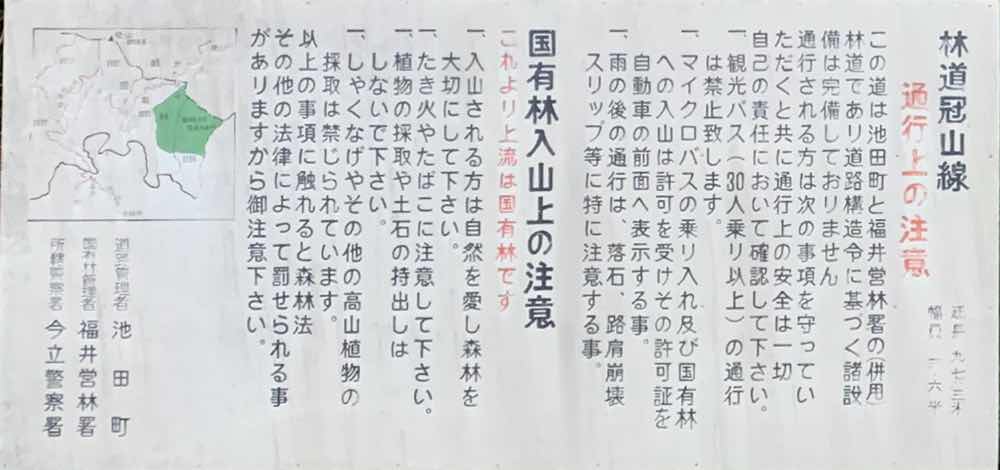 林道冠山線
通行上の注意
延長 九七三米
幅員 三・六米
この道は池田町と福井営林署の(併用)
林道であり道路構造令に基づく諸設
備は完備しておりません
通行される方は次の事項を守ってい
ただくと共に通行上の安全は一切
自己の責任において確認して下さい。
一、観光バス(30人乗り以上)の通行
は禁止致します。
一、マイクロバスの乗り入れ及び国有林
への入山は許可を受けその許可証を
自動車の前面へ表示する事。
一、雨の後の通行は、落石、路肩崩壊
スリップ等に特に注意する事。
国有林入山上の注意
これより上流は国有林です
一、入山される方は自然を愛し森林を
大切にして下さい。
一、たき火やたばこに注意して下さい。
一、植物の採取や土石の持出しは
しないで下さい。
一、しゃくなげやその他の高山植物の
採取は禁じられています。
以上の事項に触れると森林法
その他の法律によって罰せられる事
がありますから御注意下さい。
道路管理者 池田町
国有林管理者 福井営林署
所轄警察署 今立警察署